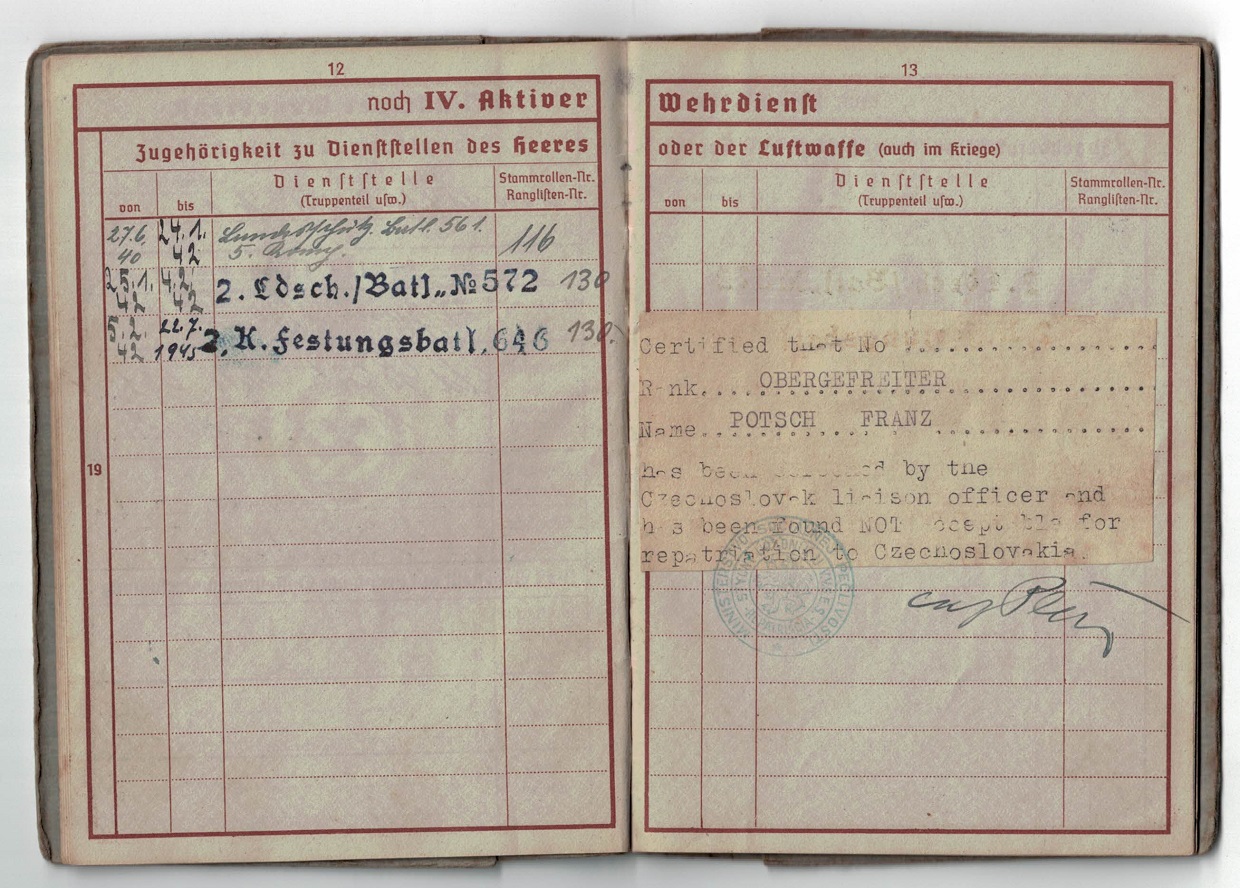 12
noch IV. Aktiver
Zugehörigkeit zu Dienststellen des Heeres
von
bis
Dienststelle
(Truppenteil usw.)
Stammrollen-Nr.
Ranglisten-Nr.
27.6. 24.1. Landesschütz. Batl. 561.
40 42 5. Komp. 116
25.1. 4.2.
42 42 2. Ldsch./Batl. № 572 130
5.2. 22.7. 2. K. Festungsbatl. 646 130.
42 1945
19
13
Wehrdienst
oder der Luftwaffe (auch im Kriege)
von
bis
Dienststelle
(Truppenteil usw.)
Stammrollen-Nr.
Ranglisten-Nr.
Certified that No ....................
Rank.... OBERGEFREITER................
Name.. POTSCH FRANZ ................
has been by the
Czechoslovak liaison officer and
has been found NOT acceptable for
repatriation to Czechoslovakia.